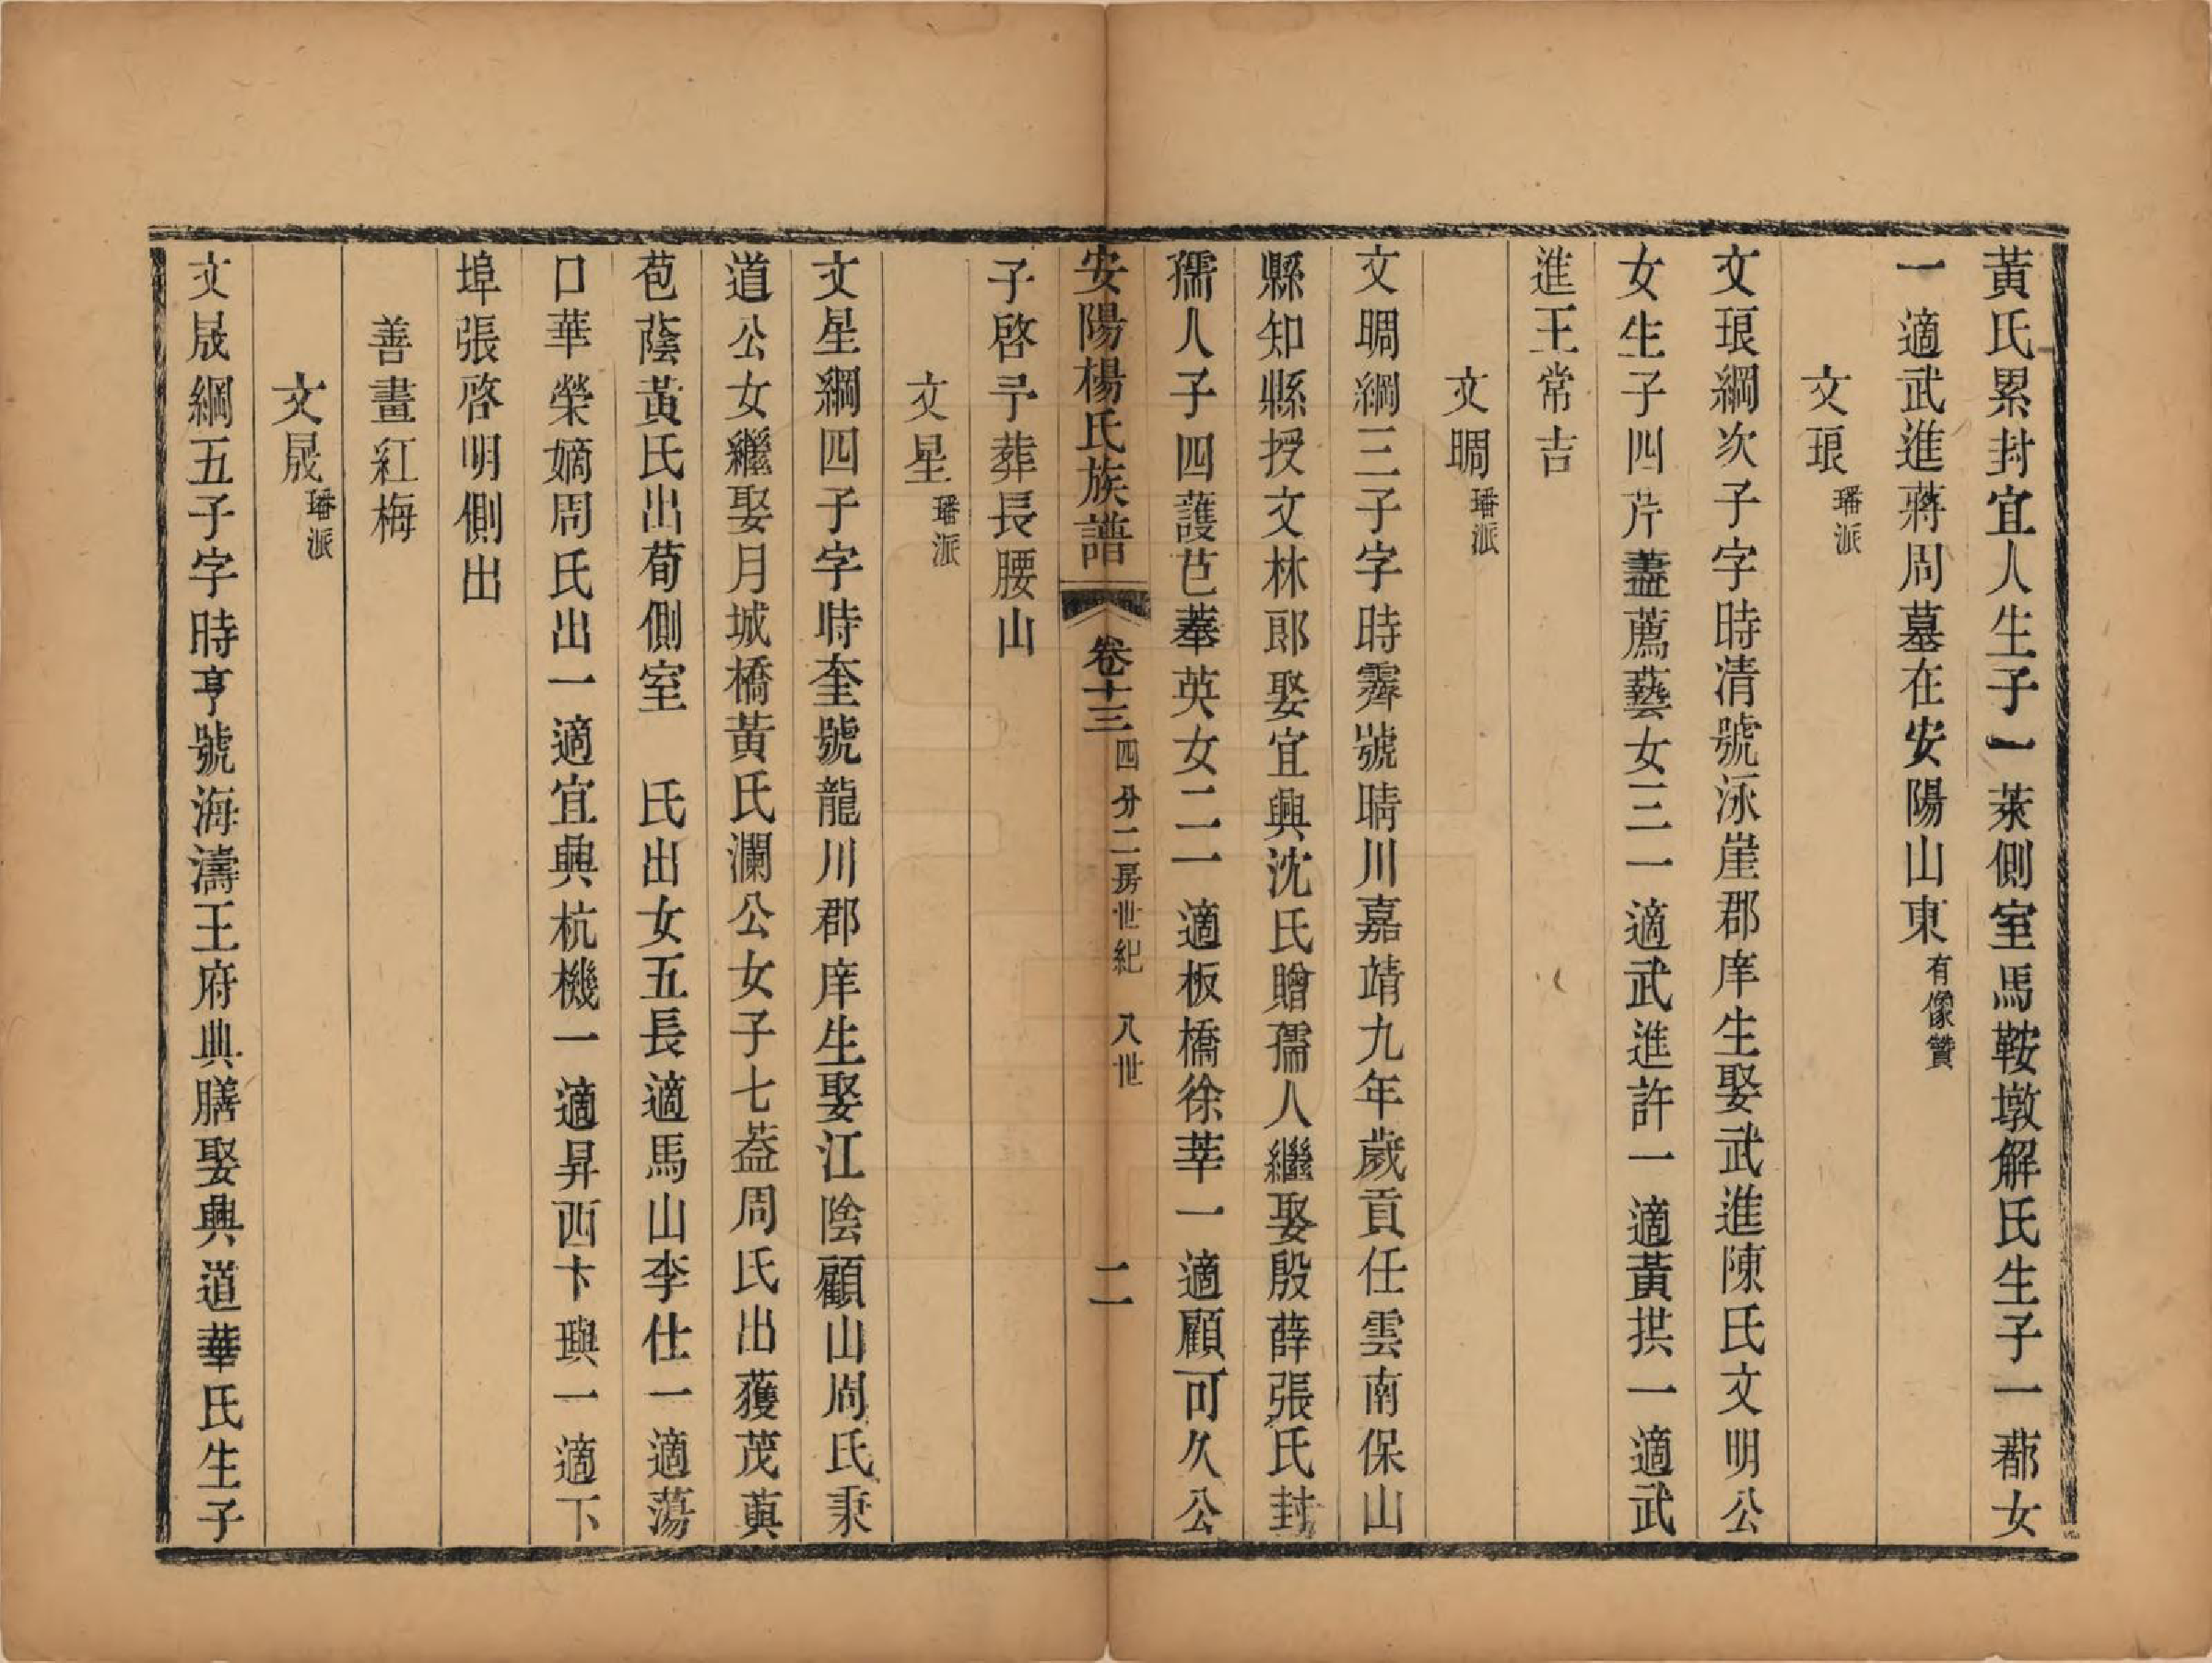 黃氏累封宜人生子一萊側室馬鞍墩解氏生子一䕻女
一適武進蔣周墓在安陽山東有像贊
文琅璠派
文琅綱次子字時清號泳崖郡庠生娶武進陳氏文明公
女生子四芹藎薦藝女三一適武進許一適黃拱一適武
進王常吉
文㫻璠派
文㫻綱三子字時霽號晴川嘉靖九年歲貢任雲南保山
縣知縣授文林郎娶宜興沈氏贈孺人繼娶殷薛張氏封
孺人子四䕶芭菶英女二一適板橋徐莘一適顧可久公
子啓予葬長腰山
安陽楊氏族譜 卷十三四分二房世紀 八世 二
文星璠派
文星綱四子字時奎號龍川郡庠生娶江陰顧山周氏秉
道公女繼娶月城橋黃氏瀾公女子七葢周氏出蒦茂萸
苞蔭黃氏出荀側室 氏出女五長適馬山李仕一適蕩
口華榮嫡周氏出一適宜興杭機一適昇西卞璵一適下
埠張啓明側出
善畫紅梅
文晟璠派
文晟綱五子字時亨號海濤王府典膳娶興道華氏生子